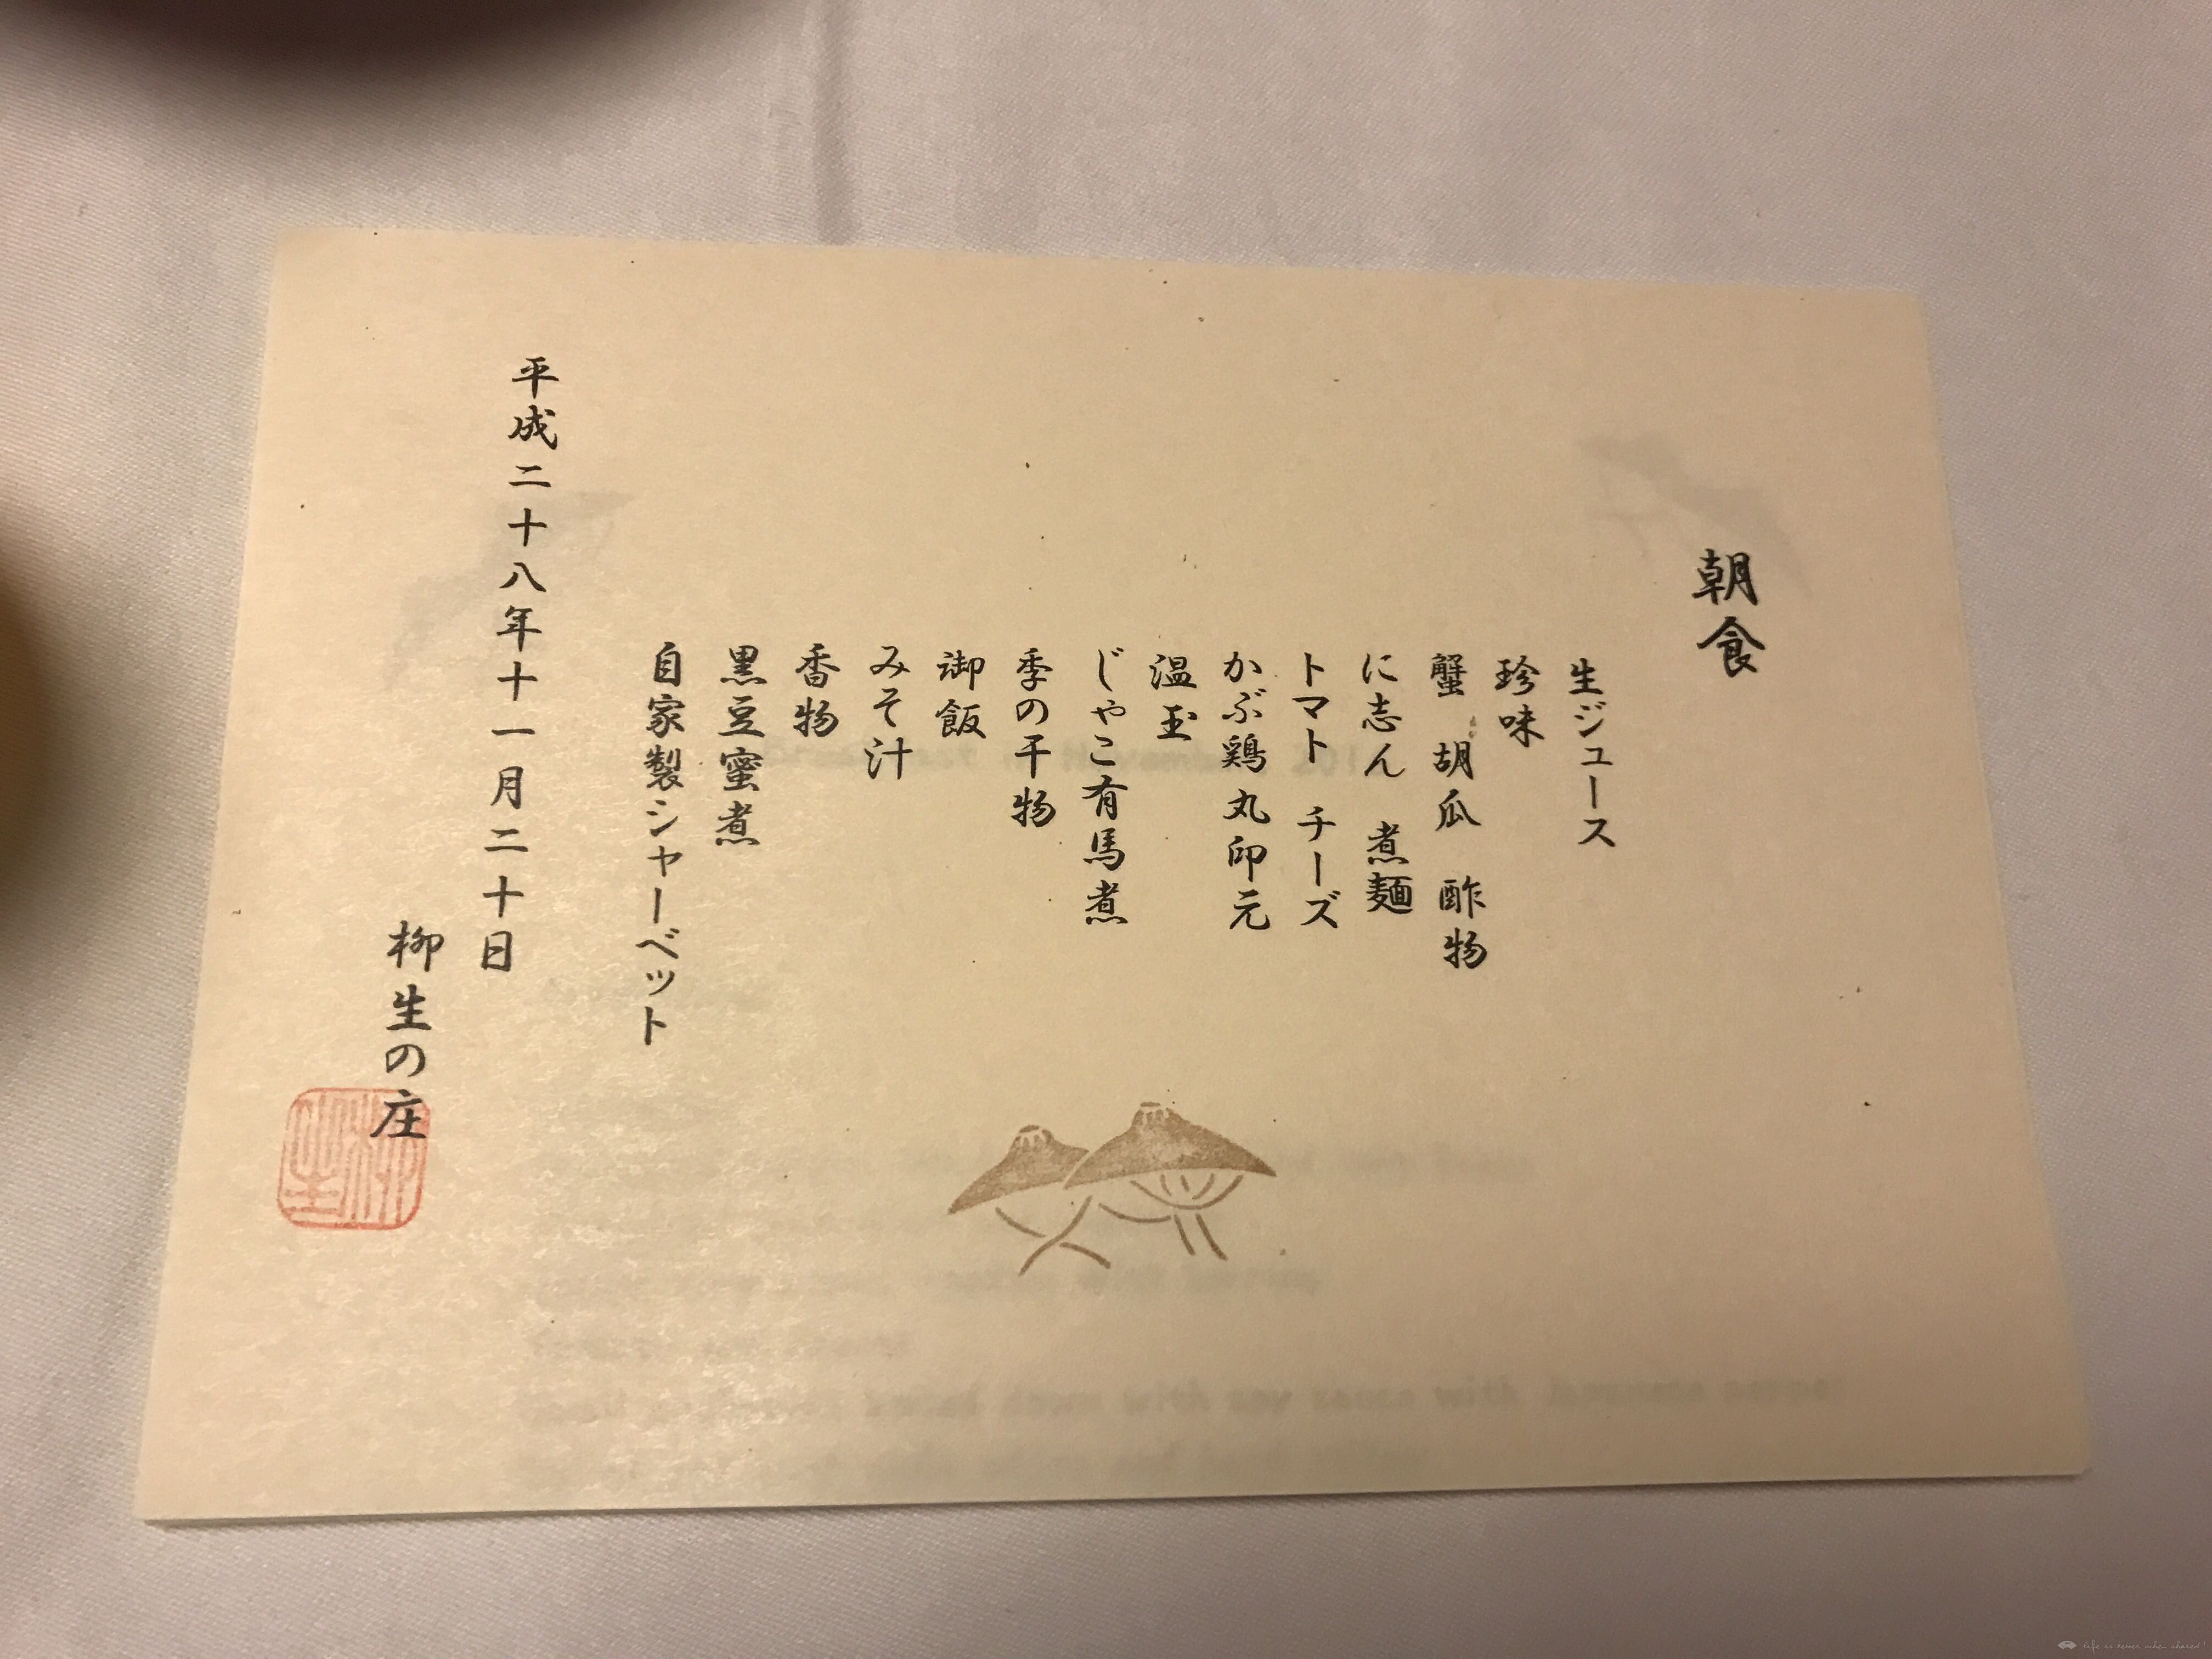 朝食
生ジュース
珍味
蟹 胡瓜 酢物
に志ん 煮麺
トマト チーズ
かぶ鶏丸印元
温玉
じゃこ有馬煮
季の干物
御飯
みそ汁
香物
黒豆蜜煮
自家製シャーベット
平成二十八年十一月二十日
柳生の庄
life is better when shared!